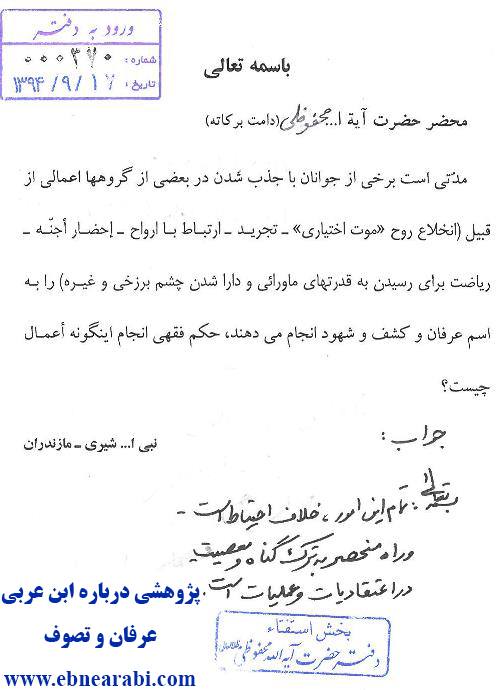 ورود به دفتر
شماره: ۰۰۰۳۷۰
تاریخ: ۱۳۹۴/۹/۱۷
باسمه تعالی
محضر حضرت آیة ا... محفوظی (دامت برکاته)
مدّتی است برخی از جوانان با جذب شدن در بعضی از گروهها اعمالی از
قبیل (انخلاع روح «موت اختیاری» ـ تجرید ـ ارتباط با ارواح ـ إحضار أجنّه ـ
ریاضت برای رسیدن به قدرتهای ماورائی و دارا شدن چشم برزخی و غیره) را به
اسم عرفان و کشف و شهود انجام می دهند، حکم فقهی انجام اینگونه أعمال
چیست؟
نبی ا... شیری ـ مازندران
جواب:
بسمه تعالی: تمام این امور، خلاف احتیاط است -
وراه منحصر به ترک گناه و معصیت
در اعتقادیات و عملیات است.
بخش استفتاء
دفتر حضرت آیه الله محفوظی
پژوهشی درباره ابن عربی
عرفان و تصوف
www.ebnearabi.com